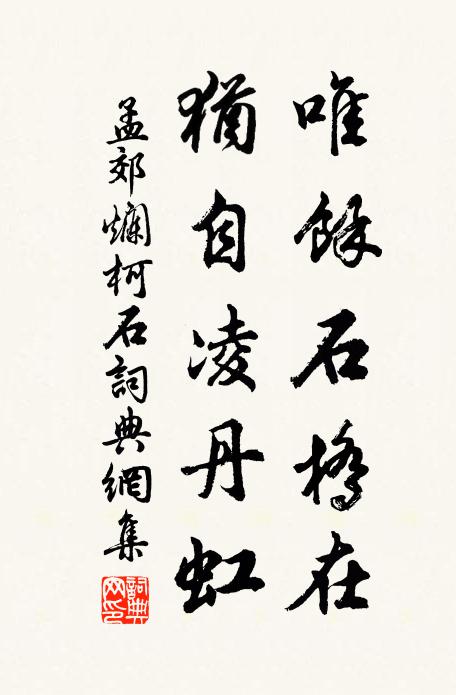 唯餘石橋在
猶自凌丹虹
孟郊爛柯石詞典網集
詞典网印